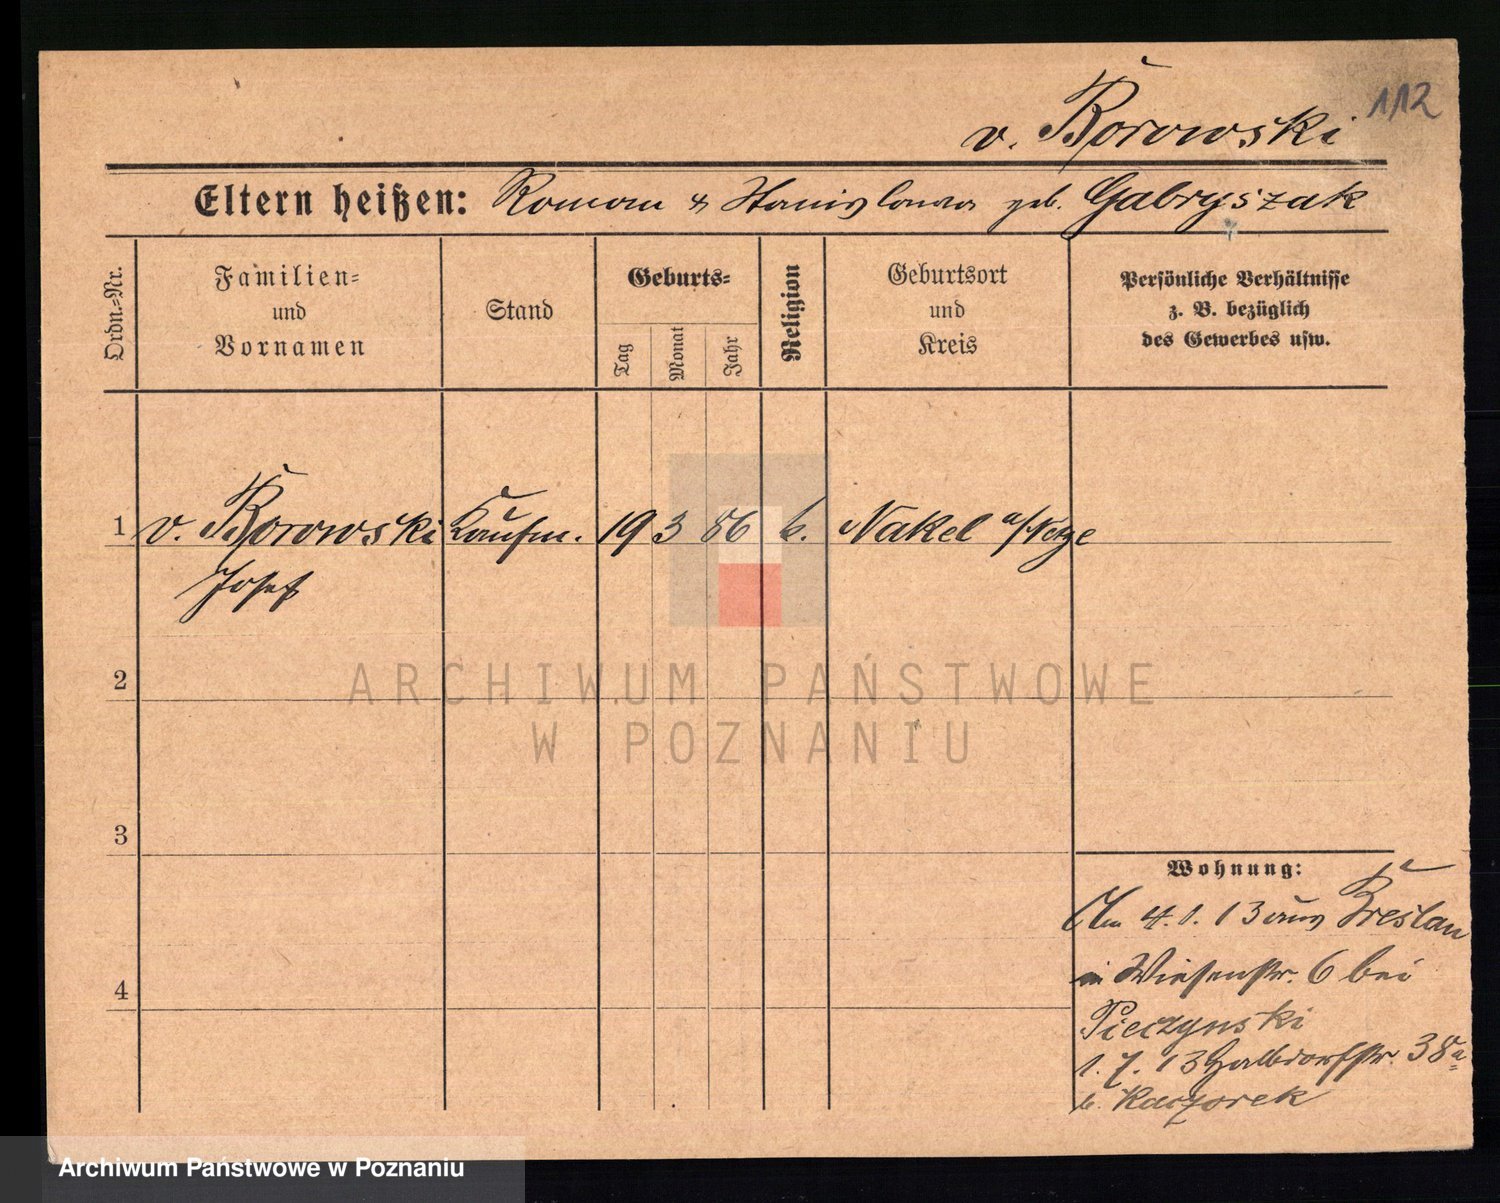 112
v. Borowski
Eltern heißen: Roman & Stanislawa geb. Gabryszak
Ordn.-Nr.
Familien- und Vornamen
Stand
Geburts-
Tag
Monat
Jahr
Religion
Geburtsort und Kreis
Persönliche Verhältnisse
z. B. bezüglich
des Gewerbes usw.
1 v. Borowski Kaufm. 19 3 86 k. Nakel a/Netze
Josef
2
3
4
Wohnung:
Am 4. 1. 13 aus Breslau
in Wiesenstr. 6 bei
Pieczynski
1. 7. 13 Halbdorfstr. 38a
b. Kaczorek
ARCHIWUM PAŃSTWOWE
W POZNANIU
Archiwum Państwowe w Poznaniu